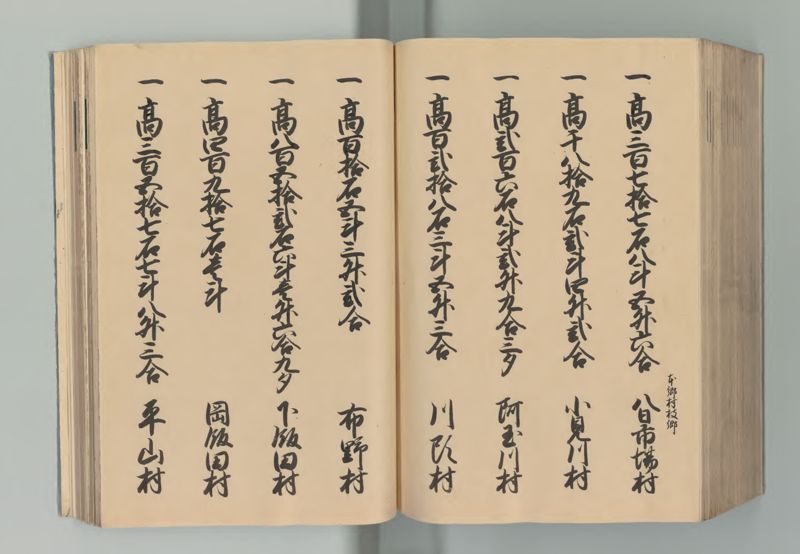 一高三百七拾七石八斗五升六合 八日市場村
本郷村枝郷
一高千八拾九石弐斗四升弐合 小見川村
一高弐百六石八斗弐升九合三夕 阿玉川村
一高百弐拾八石三斗五升三合 川頭村
一高百拾石五斗三升弐合 布野村
一高八百五拾弐石六斗壱升六合九夕 下飯田村
一高四百九拾七石壱斗 岡飯田村
一高三百五拾七石七斗八升三合 平山村